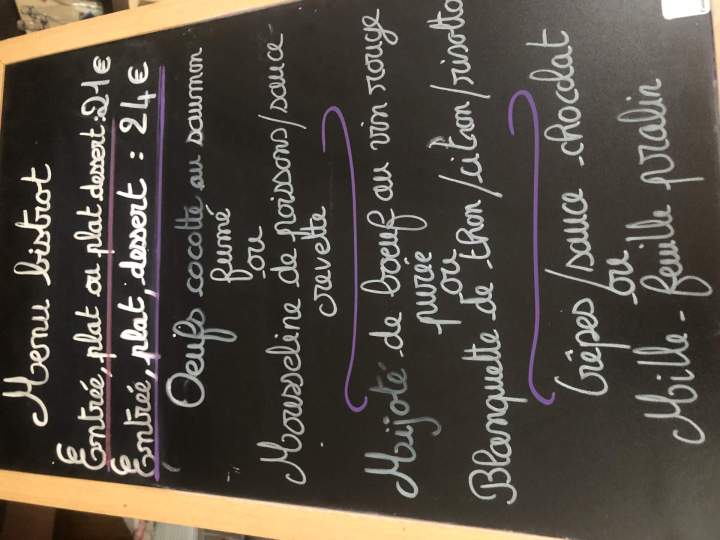 Menu bistrot
Entrée, plat ou plat dessert : 21€
Entrée, plat, dessert : 24€
Oeufs cocotte au saumon
fumé
ou
Mousseline de poissons/sauce
crevette
Mijoté de boeuf au vin rouge
purée
ou
Blanquette de thon/citron/risotto
Crêpes/sauce chocolat
ou
Mille-feuille pralin